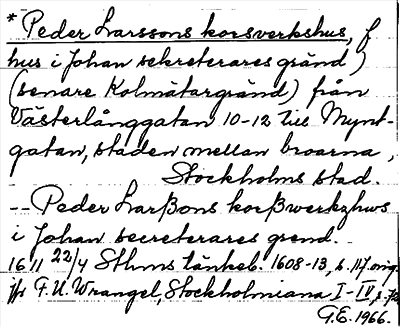 * Peder Larssons korsverkshus, f
hus i Johan sekreterares gränd)
(senare Kolmätargränd) från
Västerlånggatan 10-12 till Mynt-
gatan, staden mellan broarna,
Stockholms stad.
-- Peder Larßons korßwerkzhws
i Johan secreterares grend.
1611 22/4 Sthms tänkeb. 1608-13, s. 117 orig.
jfr F.U. Wrangel, Stockholmiana I-IV, s. 72
G.E. 1966.